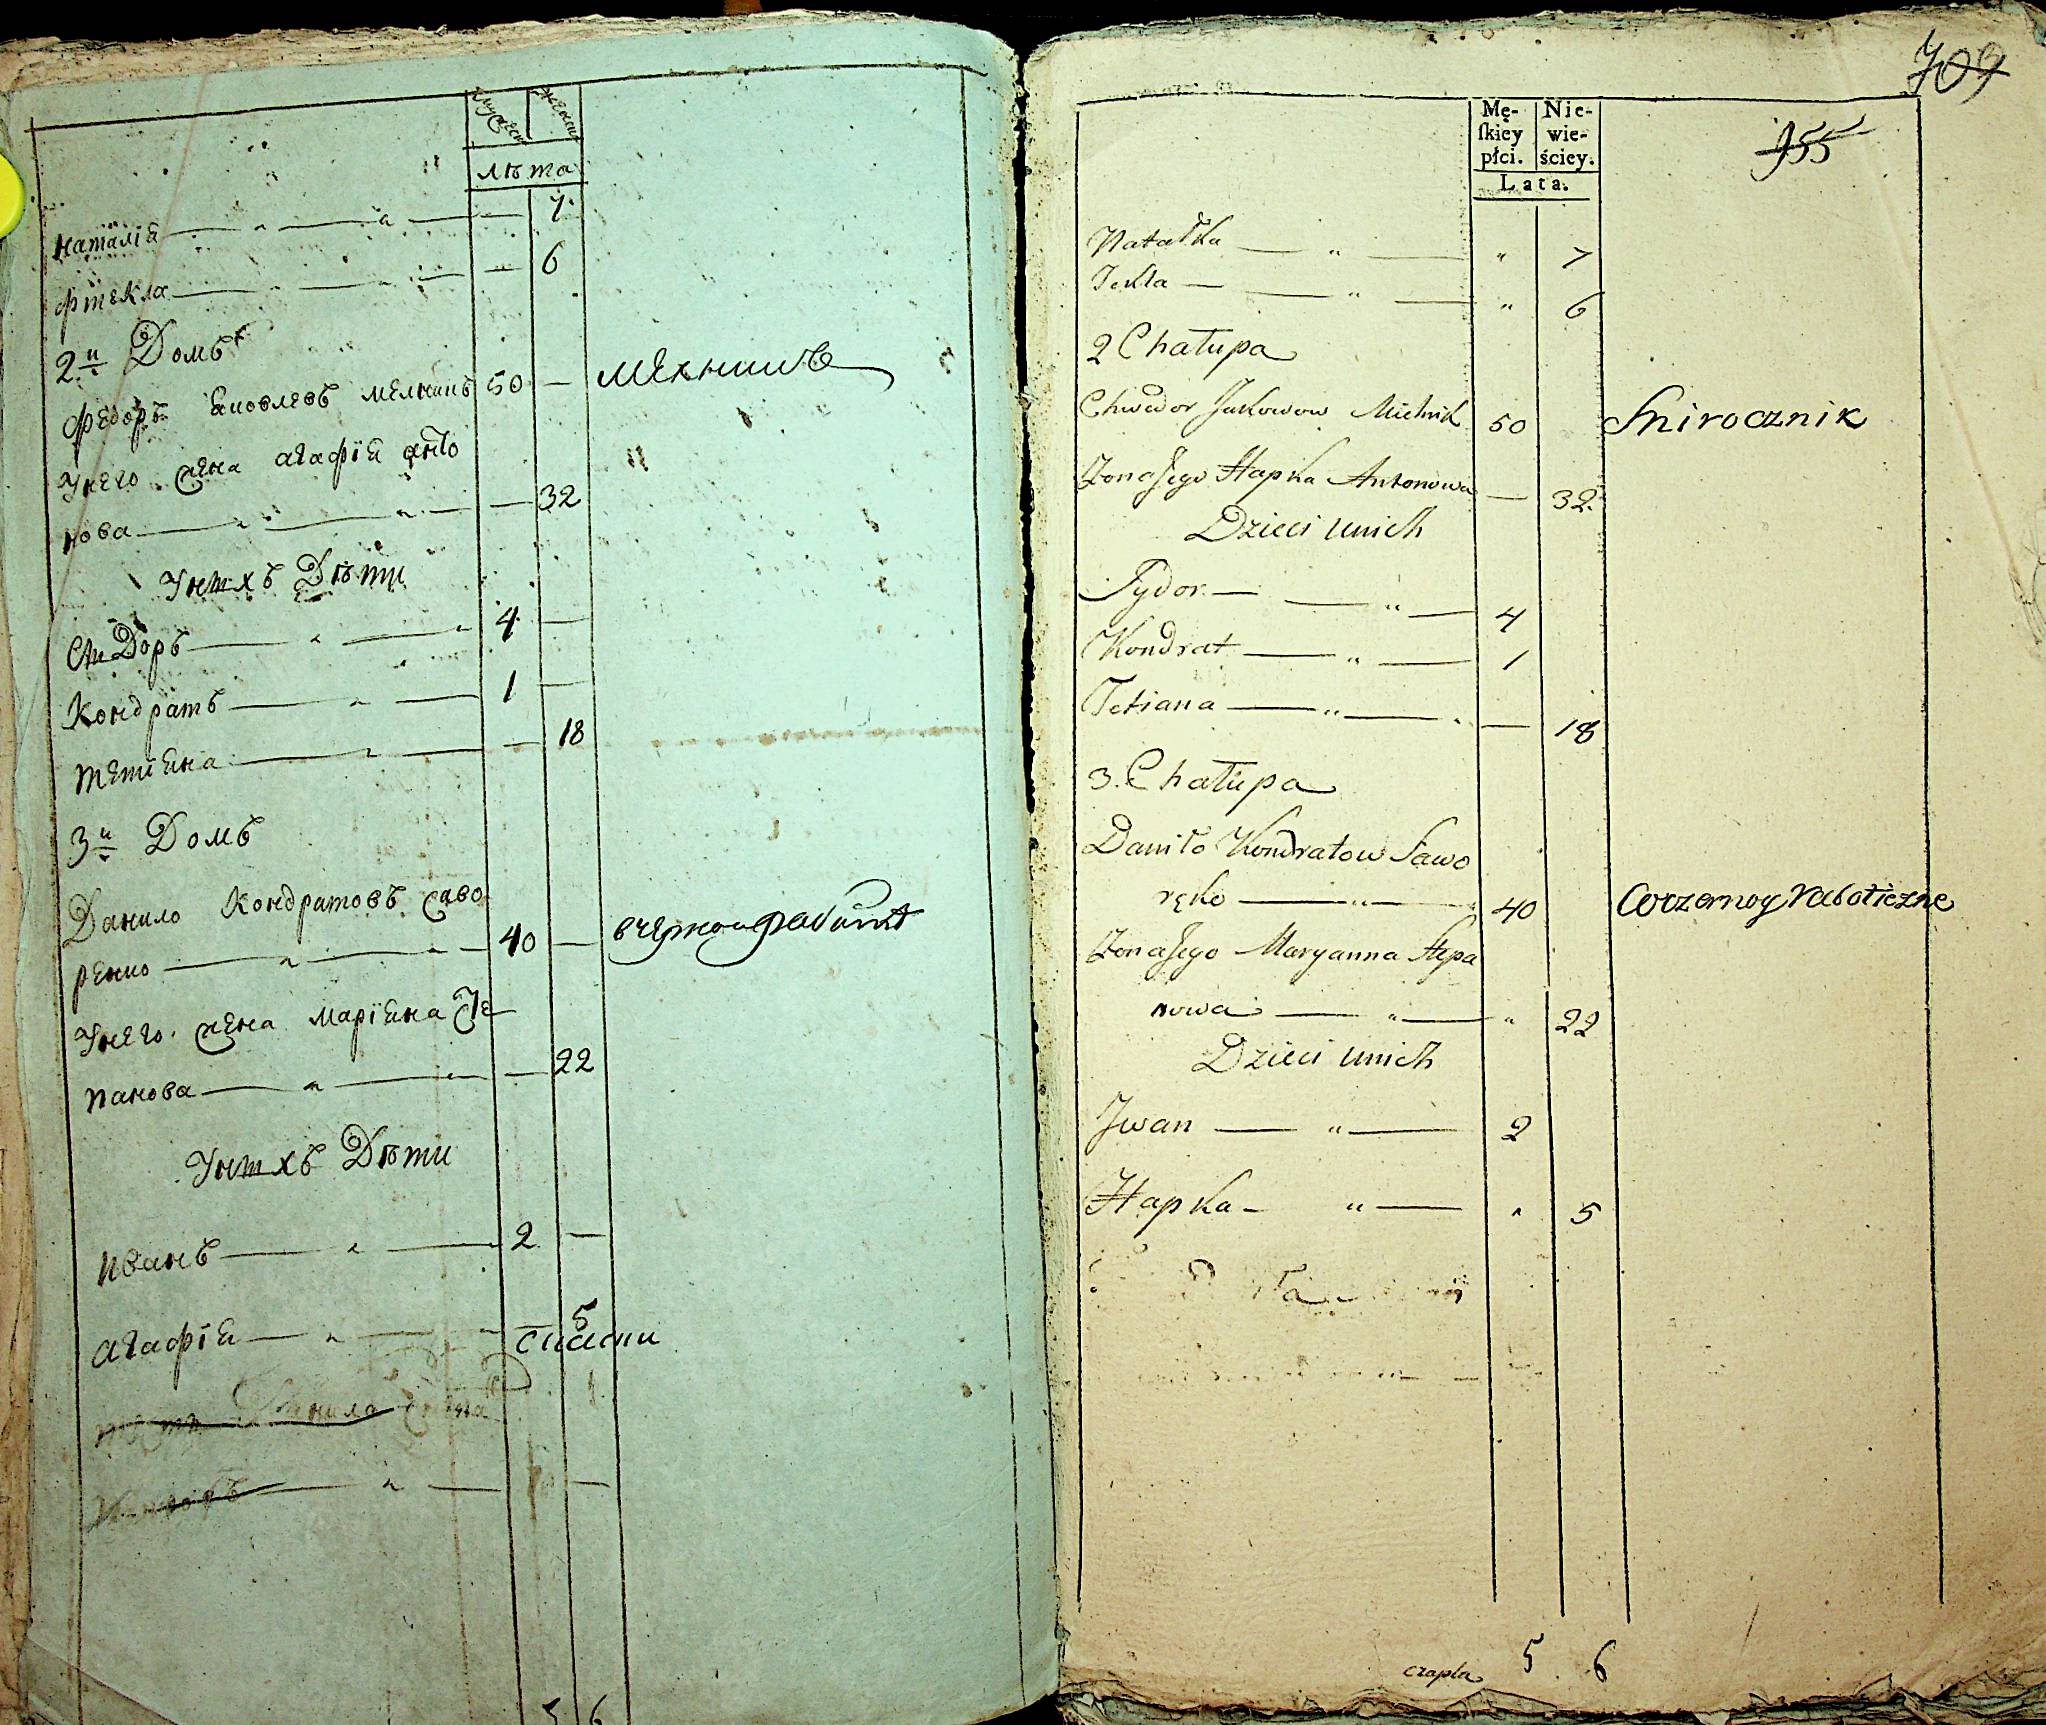 мужеск женск
лѣта
Наталіа — " — " — — 7
Фтекла — " — " — — 6
2й Домъ
Федоръ Яковлевъ Мелникъ 50 —
Унего жена Агафіа Анто
нова — " — " — — 32
Унихъ Дѣти
Сидоръ — " — " 4 —
Кондратъ — " — 1 —
Тетіана — " — — 18
3й Домъ
Данило Кондратовъ Саво
ренко — " — " — 40 —
Унего жена Маріана Сте
панова — " — " — 22
Унихъ Дѣти
Иванъ — " — 2 —
Агафіа — " — — 5
5 6
709
955
Mę-
ſkiey
płci.
Nie-
wie-
ściey.
Lata.
Natałka — " — " 7
Tekla — — " — " 6
2 Chałupa
Chwedor Jakowow Mielnik 50
Żona Jego Hapka Antonowa — 32
Dzieci unich
Sydor — — " — 4
Kondrat — " — 1
Tetiana — " — " — 18
3. Chałupa
Daniło Kondratow Sawo
ręko — " — " 40
Żona Jego Maryanna Stepa
nowa — " — " 22
Dzieci unich
Jwan — " — 2
Hapka — " — " 5
czapla 5 . 6